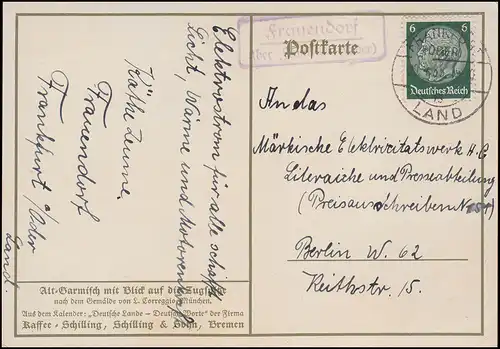 Elektrostrom für alle schafft
Licht, Wärme und Motorenkraft
Käthe Zeume
Frauendorf
Frankfurt a/Oder
Land.
Frauendorf
Postkarte
6
Deutsches Reich
FRANKFURT
ODER
LAND
An das
Märkische Elektrizitätswerk A.G.
Literarische und Presseabteilung
(Preisausschreiben No
Berlin W. 62
Keithstr. 15.
Alt-Garmisch mit Blick auf die Zugspitze
nach dem Gemälde von L. Correggio, München.
Aus dem Kalender: „Deutsche Lande – Deutsche Worte" der Firma
Kaffee-Schilling, Schilling & Sohn, Bremen